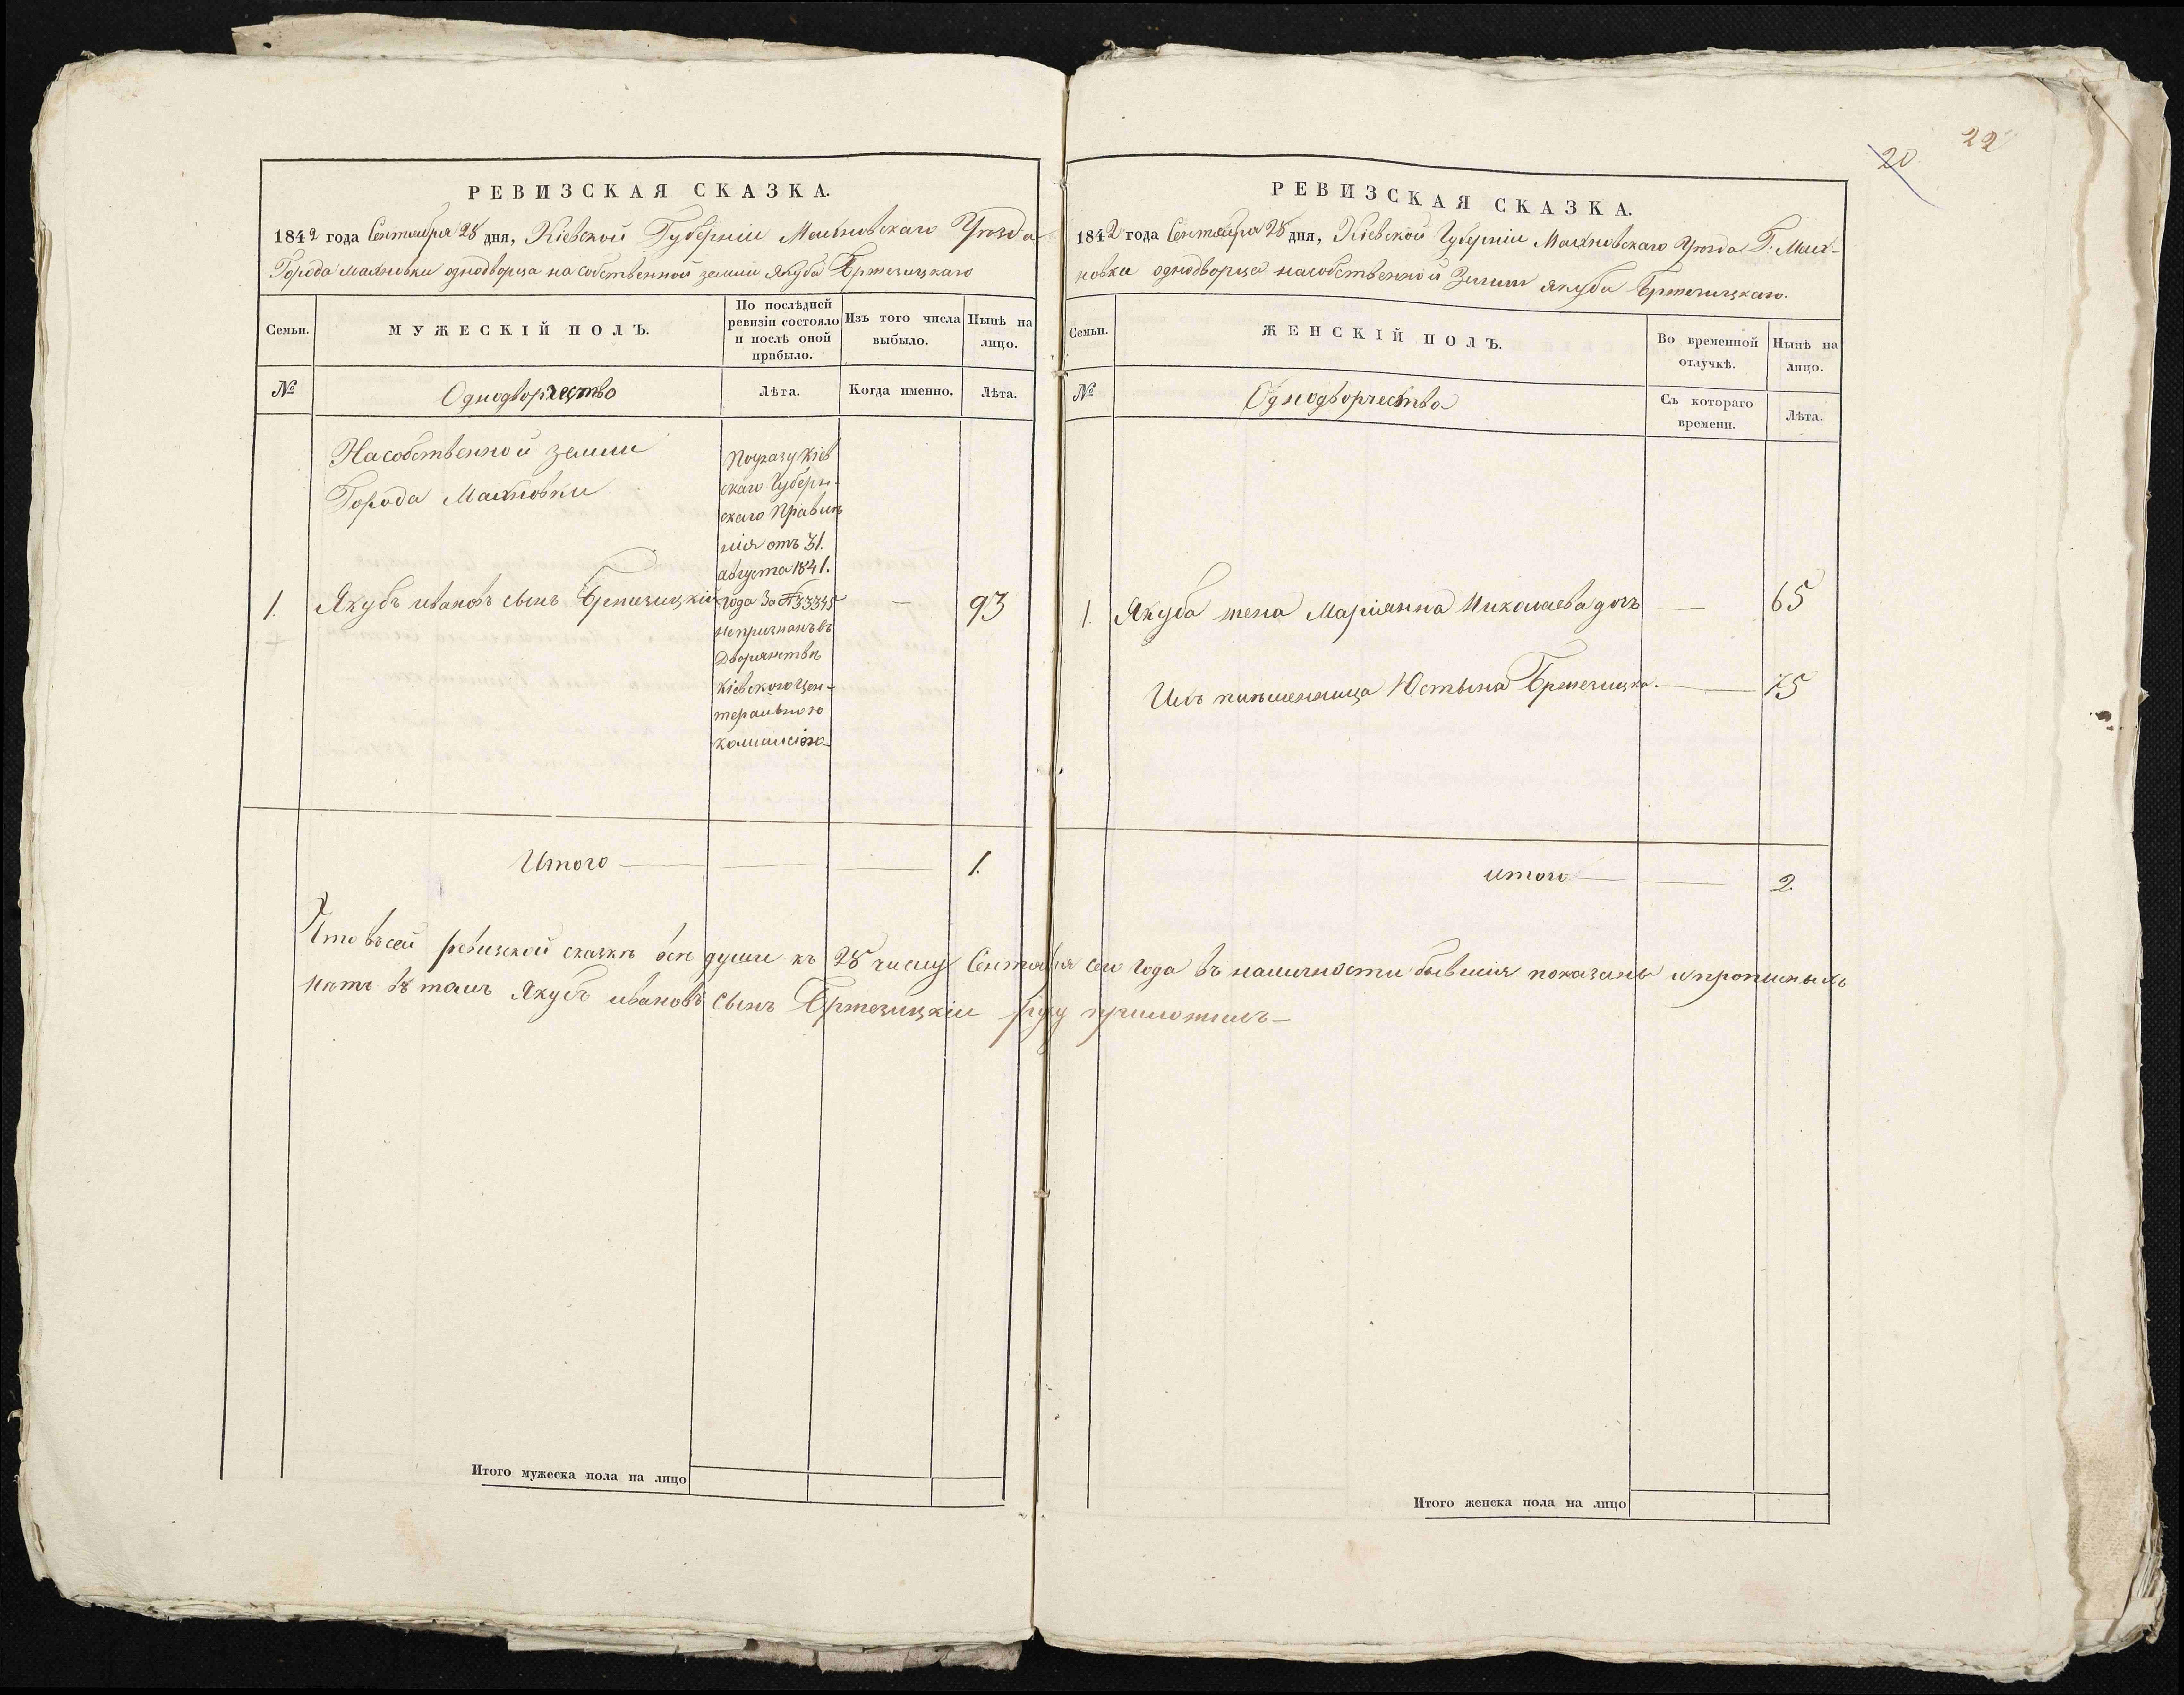 РЕВИЗСКАЯ СКАЗКА.
1842 года Сентября 28 дня, Кіевской Губерніи Махновскаго Уѣзда
Города Махновки однодворца на собственной земли Якуба Бржезицкаго
Семьи.
МУЖЕСКІЙ ПОЛЪ.
По послѣдней
ревизіи состояло
и послѣ оной
прибыло.
Изъ того числа
выбыло.
Нынѣ на
лицо.
№
Однодворчество
Лѣта.
Когда именно.
Лѣта.
На собственной земли
Города Махновки
По указу Кіев
скаго Губерн-
скаго Правлѣ
нія отъ 31.
августа 1841.
года За № 33345
непризнанъ въ
Дворянствѣ
Кіевского Цен-
теральною
1. Якубъ ивановъ сынъ Бржезицкій — 93
Итого — — — 1.
РЕВИЗСКАЯ СКАЗКА.
1842 года Сентября 28 дня, Кіевской Губерніи Махновскаго Уѣзда Г. Мах-
новки однодворца на собственной Земли Якуба Бржезицкаго.
Семьи.
ЖЕНСКІЙ ПОЛЪ.
Во временной
отлучкѣ.
Нынѣ на
лицо.
№
Однодворчества
Съ котораго
времени.
Лѣта.
1. Якуба жена Маріянна Николаева дочъ — 65
Ихъ Юстына Бржезицка — 75
итого — — 2
Что въ сей ревизской сказкѣ всѣ души къ 28 числу Сентября сего года въ наличности бывшія показаны и прописныхъ
нѣтъ въ томъ Якубъ ивановъ сынъ Бржезицкій руку приложилъ —
Итого мужеска пола на лицо
Итого женска пола на лицо
20
22